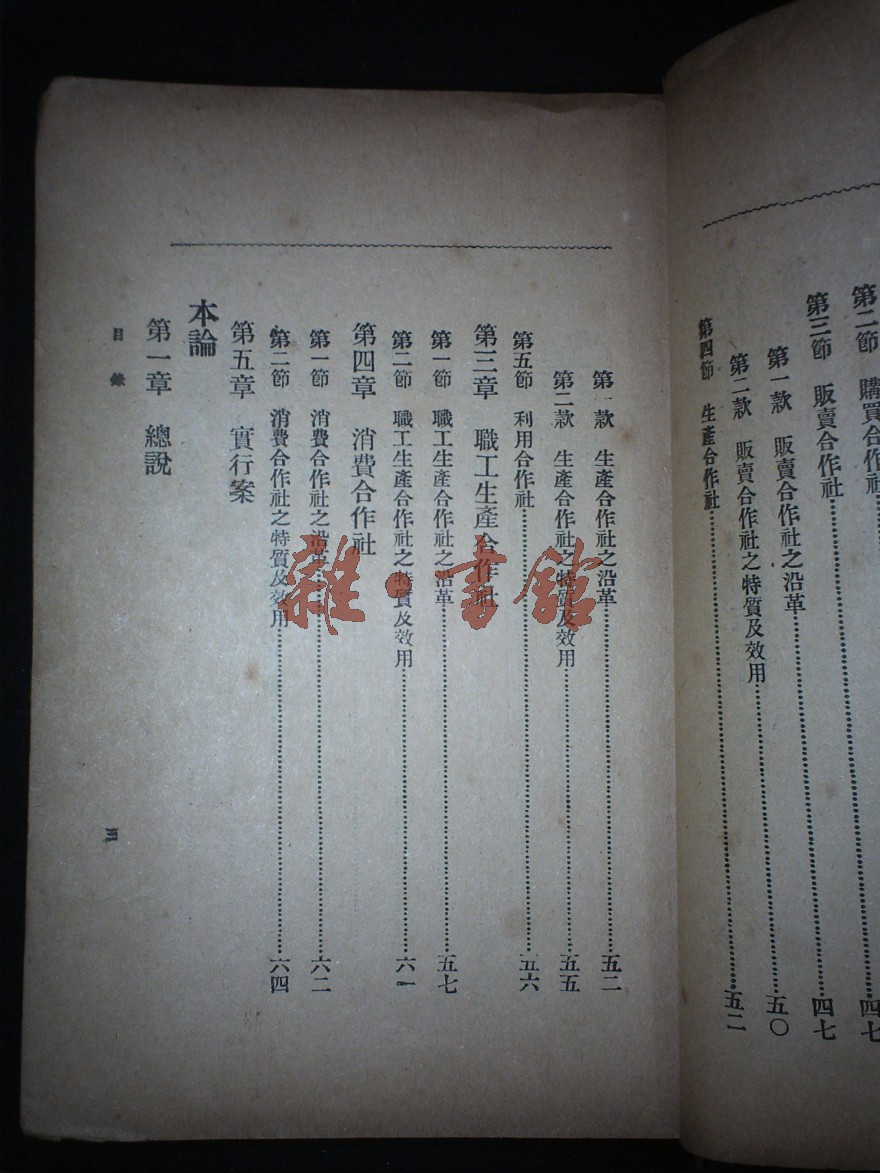 第二節 購買合作社……四七
第三節 販賣合作社……四七
第一款 販賣合作社之沿革……五〇
第二款 販賣合作社之特質及效用
第四節 生產合作社……五二
第一款 生產合作社之沿革……五二
第二款 生產合作社之特質及效用……五五
第五節 利用合作社……五六
第三章 職工生產合作社
第一節 職工生產合作社之沿革……五七
第二節 職工生產合作社之特質及效用……六一
第四章 消費合作社
第一節 消費合作社之沿革……六二
第二節 消費合作社之特質及效用……六四
第五章 實行案
本論
第一章 總說
目錄
三
雜書館